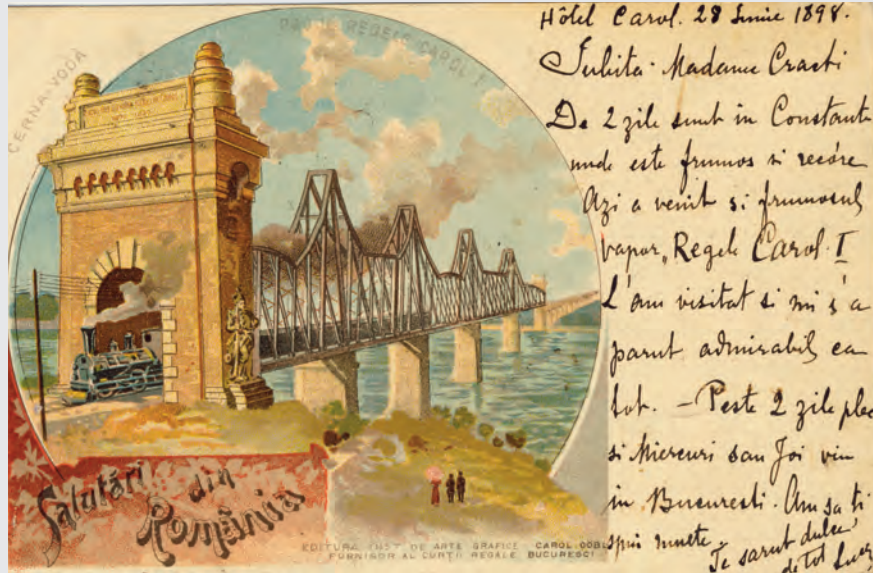 CERNA-VODA
PODUL REGELE CAROL I
Salutări din
România
EDITURA INST. DE ARTE GRAFICE CAROL GÖBL
FURNISOR AL CURTII REGALE BUCURESCI
Hôtel Carol. 28 Iunie 1898.
Iubita Madame
De 2 zile sunt in Constant
unde este frumos si recóre
Azi a venit si frumosul
vapor „Regele Carol I
L'am visitat si mi s'a
parut admirabil ca
tot. – Peste 2 zile plec
si Miercuri sau Joi vin
in Bucuresti. Am sa ti
spui multe.
Te sarut dulce
de tot